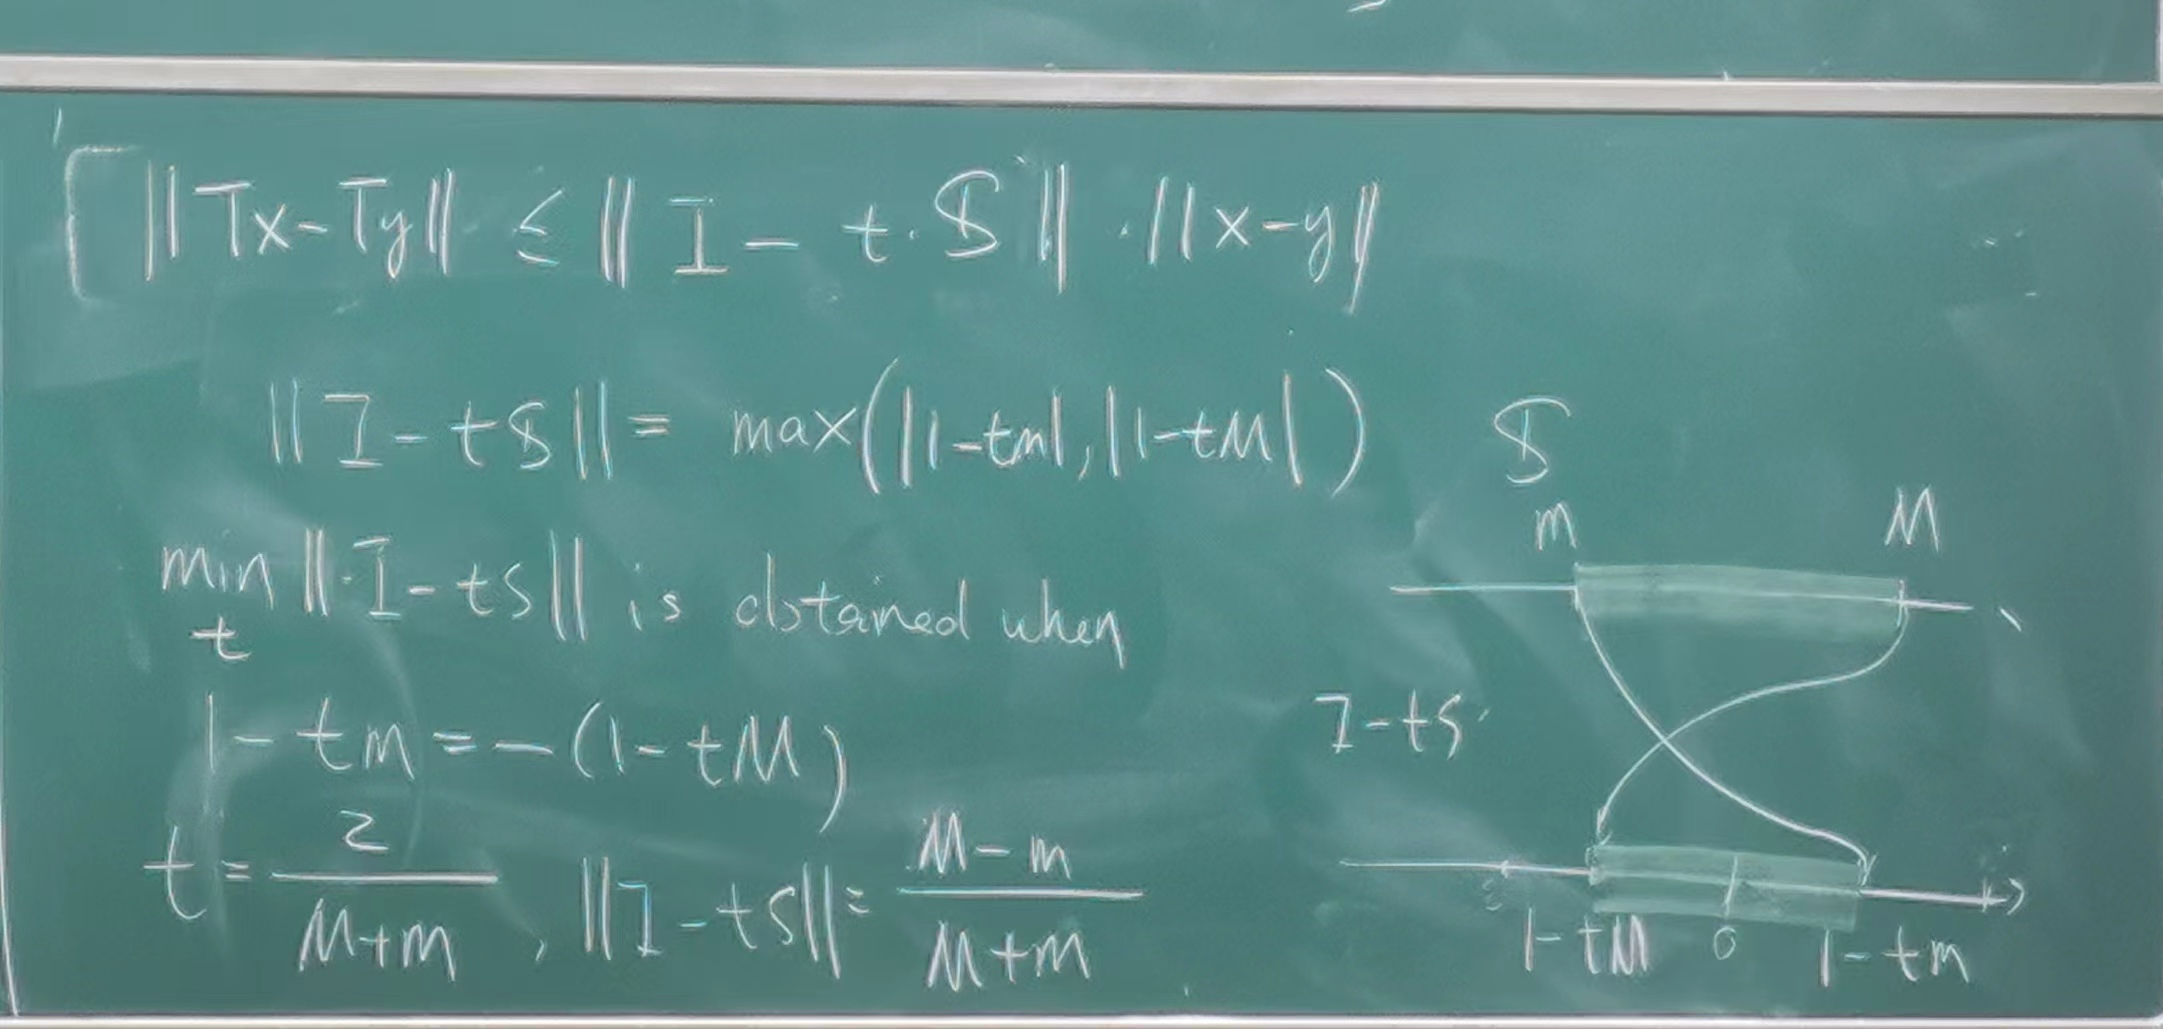 ‖Tx-Ty‖ ≤ ‖I - t·S‖·‖x-y‖
‖I-tS‖ = max(|1-tm|, |1-tM|)
min ‖I-tS‖ is obtained when
t
1-tm = -(1-tM)
t = 2/(M+m), ‖I-tS‖ = (M-m)/(M+m)
S
m M
I-tS
1-tM 0 1-tm